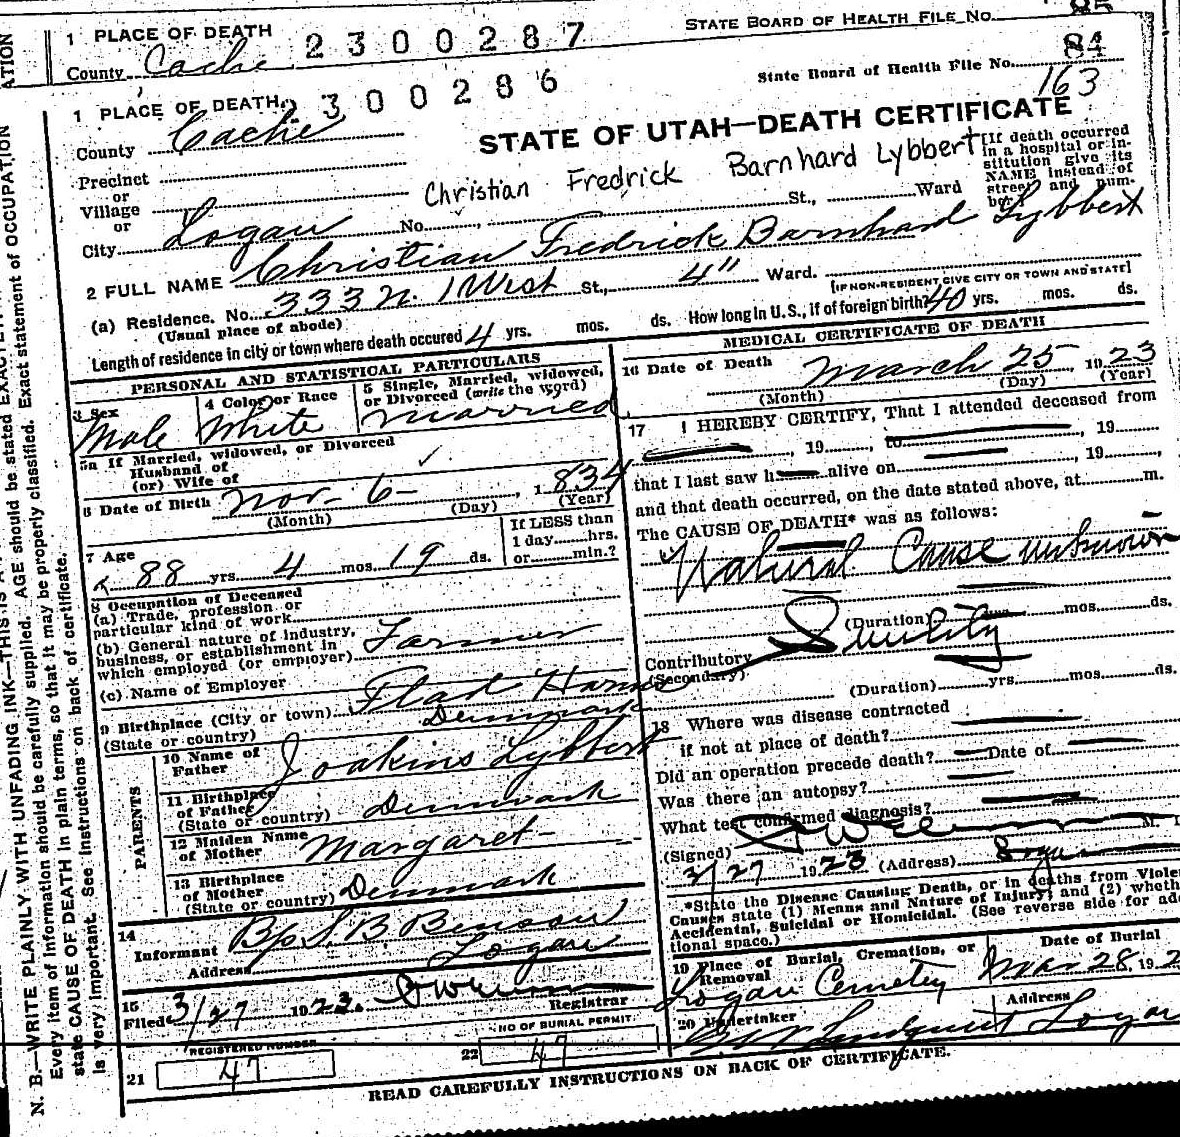 85
1 PLACE OF DEATH
STATE BOARD OF HEALTH FILE No.
County Cache
2300287
84
State Board of Health File No.
163
1 PLACE OF DEATH
2300286
County Cache
STATE OF UTAH—DEATH CERTIFICATE
Precinct
or
Village
or
Christian Fredrick Barnhard Lybbert
[If death occurred
in a hospital or in-
stitution give its
NAME instead of
street and num-
ber
City Logan No. St., Ward
2 FULL NAME Christian Fredrick Barnhard Lybbert
(a) Residence. No. 333 N. 1 West St., 4" Ward.
(Usual place of abode)
[IF NON-RESIDENT GIVE CITY OR TOWN AND STATE]
Length of residence in city or town where death occured 4 yrs. mos. ds. How long in U. S., if of foreign birth? 40 yrs. mos. ds.
PERSONAL AND STATISTICAL PARTICULARS
3 Sex
Male
4 Color or Race
White
5 Single, Married, widowed,
or Divorced (write the word)
married
5a If Married, widowed, or Divorced
Husband of
(or) Wife of
6 Date of Birth Nov- 6- , 1834
(Month) (Day) (Year)
7 Age
88 yrs. 4 mos. 19 ds.
If LESS than
1 day hrs.
or min.?
8 Occupation of Deceased
(a) Trade, profession or
particular kind of work
(b) General nature of industry,
business, or establishment in
which employed (or employer)
Farmer
(c) Name of Employer
9 Birthplace (City or town)
(State or country)
Denmark
PARENTS
10 Name of
Father
Joakins Lybbert
11 Birthplace
of Father
(State or country)
Denmark
12 Maiden Name
of Mother
Margaret
13 Birthplace
of Mother
(State or country)
Denmark
14
Informant Bp S. B Benson
Address Logan
15
Filed 3/27 1923.
Registrar
REGISTERED NUMBER
21 47
NO OF BURIAL PERMIT
22 47
READ CAREFULLY INSTRUCTIONS ON BACK OF CERTIFICATE.
MEDICAL CERTIFICATE OF DEATH
16 Date of Death
March 25 , 1923
(Month) (Day) (Year)
17 I HEREBY CERTIFY, That I attended deceased from
, 19 , to , 19
that I last saw h alive on , 19 ,
and that death occurred, on the date stated above, at m.
The CAUSE OF DEATH* was as follows:
Natural Cause unknown
(Duration) mos. ds.
Contributory Senility
(Secondary)
(Duration) yrs. mos. ds.
18 Where was disease contracted
if not at place of death?
Did an operation precede death? Date of
Was there an autopsy?
What test confirmed diagnosis?
(Signed) M.
3/27 1923 (Address) Logan
*State the Disease Causing Death, or in deaths from Viole
Causes state (1) Means and Nature of Injury; and (2) wheth
Accidental, Suicidal or Homicidal. (See reverse side for ad
tional space.)
19 Place of Burial, Cremation, or
Removal
Logan Cemetery
Date of Burial
Mar 28, 192
20 Undertaker
Lindquist
Address
Logan
ATION
N. B.—WRITE PLAINLY WITH UNFADING INK—THIS IS A
Every item of information should be carefully supplied. AGE should be stated EXACTLY.
state CAUSE OF DEATH in plain terms, so that it may be properly classified. Exact statement of OCCUPATION
is very important. See instructions on back of certificate.